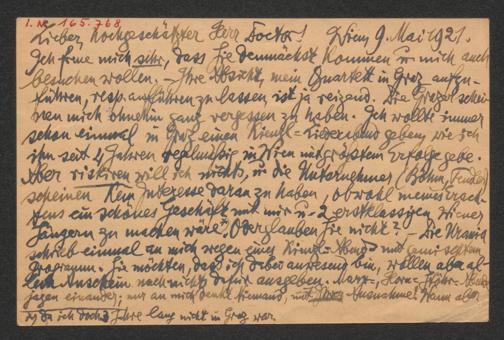 I. N. 165.768
Lieber, hochgeschätzter Herr Doctor! Wien 9. Mai 1921.
Ich freue mich sehr, dass Sie demnächst kommen u. mich auch
besuchen wollen. – Ihre Absicht, mein Quartett in Graz aufzu-
führen, resp. aufführen zu lassen, ist ja reizend. Die Grazer schei-
nen mich ohnehin ganz vergessen zu haben. Ich wollte immer
schon einmal in Graz einen Kienzl-Liederabend geben, wie ich
ihn seit 4 Jahren regelmäßig in Wien mit größtem Erfolge gebe.
Aber riskieren will ich nichts, u. die Unternehmer (Böhm,
scheinen kein Interesse daran zu haben, obwohl meines Erach-
tens ein schönes Geschäft mit mir u. 2 erstklassigen Wiener
Sängern zu machen wäre. Oder glauben Sie nicht? – Die Urania
schrieb einmal an mich wegen eines Kienzl-Abends mit gemischtem
Programm. Sie möchten, dass ich dabei anwesend bin, wollen aber al-
lem Anschein nach nichts dafür ausgeben. Marx-,
jagen einander; nur an mich denkt Niemand, mit Ausnahme! Wann aber
ich doch 3 Jahre lang nicht in Graz war.